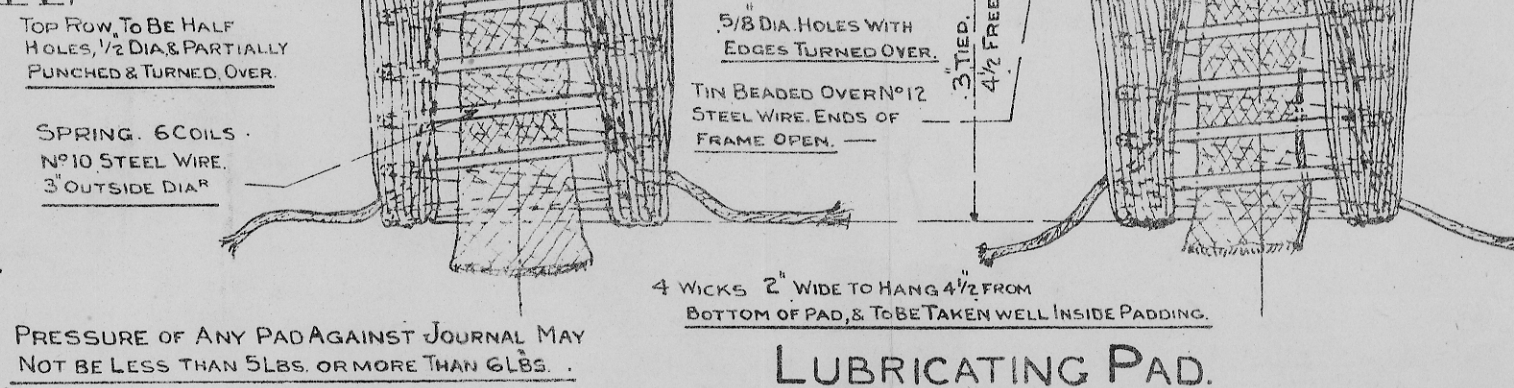 TOP ROW, TO BE HALF
HOLES, 1/2" DIA, & PARTIALLY
PUNCHED & TURNED OVER.
SPRING. 6 COILS.
Nº 10 STEEL WIRE.
3" OUTSIDE DIAR
5/8" DIA. HOLES WITH
EDGES TURNED OVER.
TIN BEADED OVER Nº 12
STEEL WIRE. ENDS OF
FRAME OPEN.
3" TIED.
4 1/2 FREE
4 WICKS 2" WIDE TO HANG 4 1/2" FROM
BOTTOM OF PAD, & TO BE TAKEN WELL INSIDE PADDING.
PRESSURE OF ANY PAD AGAINST JOURNAL MAY
NOT BE LESS THAN 5 LBS. OR MORE THAN 6 LBS.
LUBRICATING PAD.